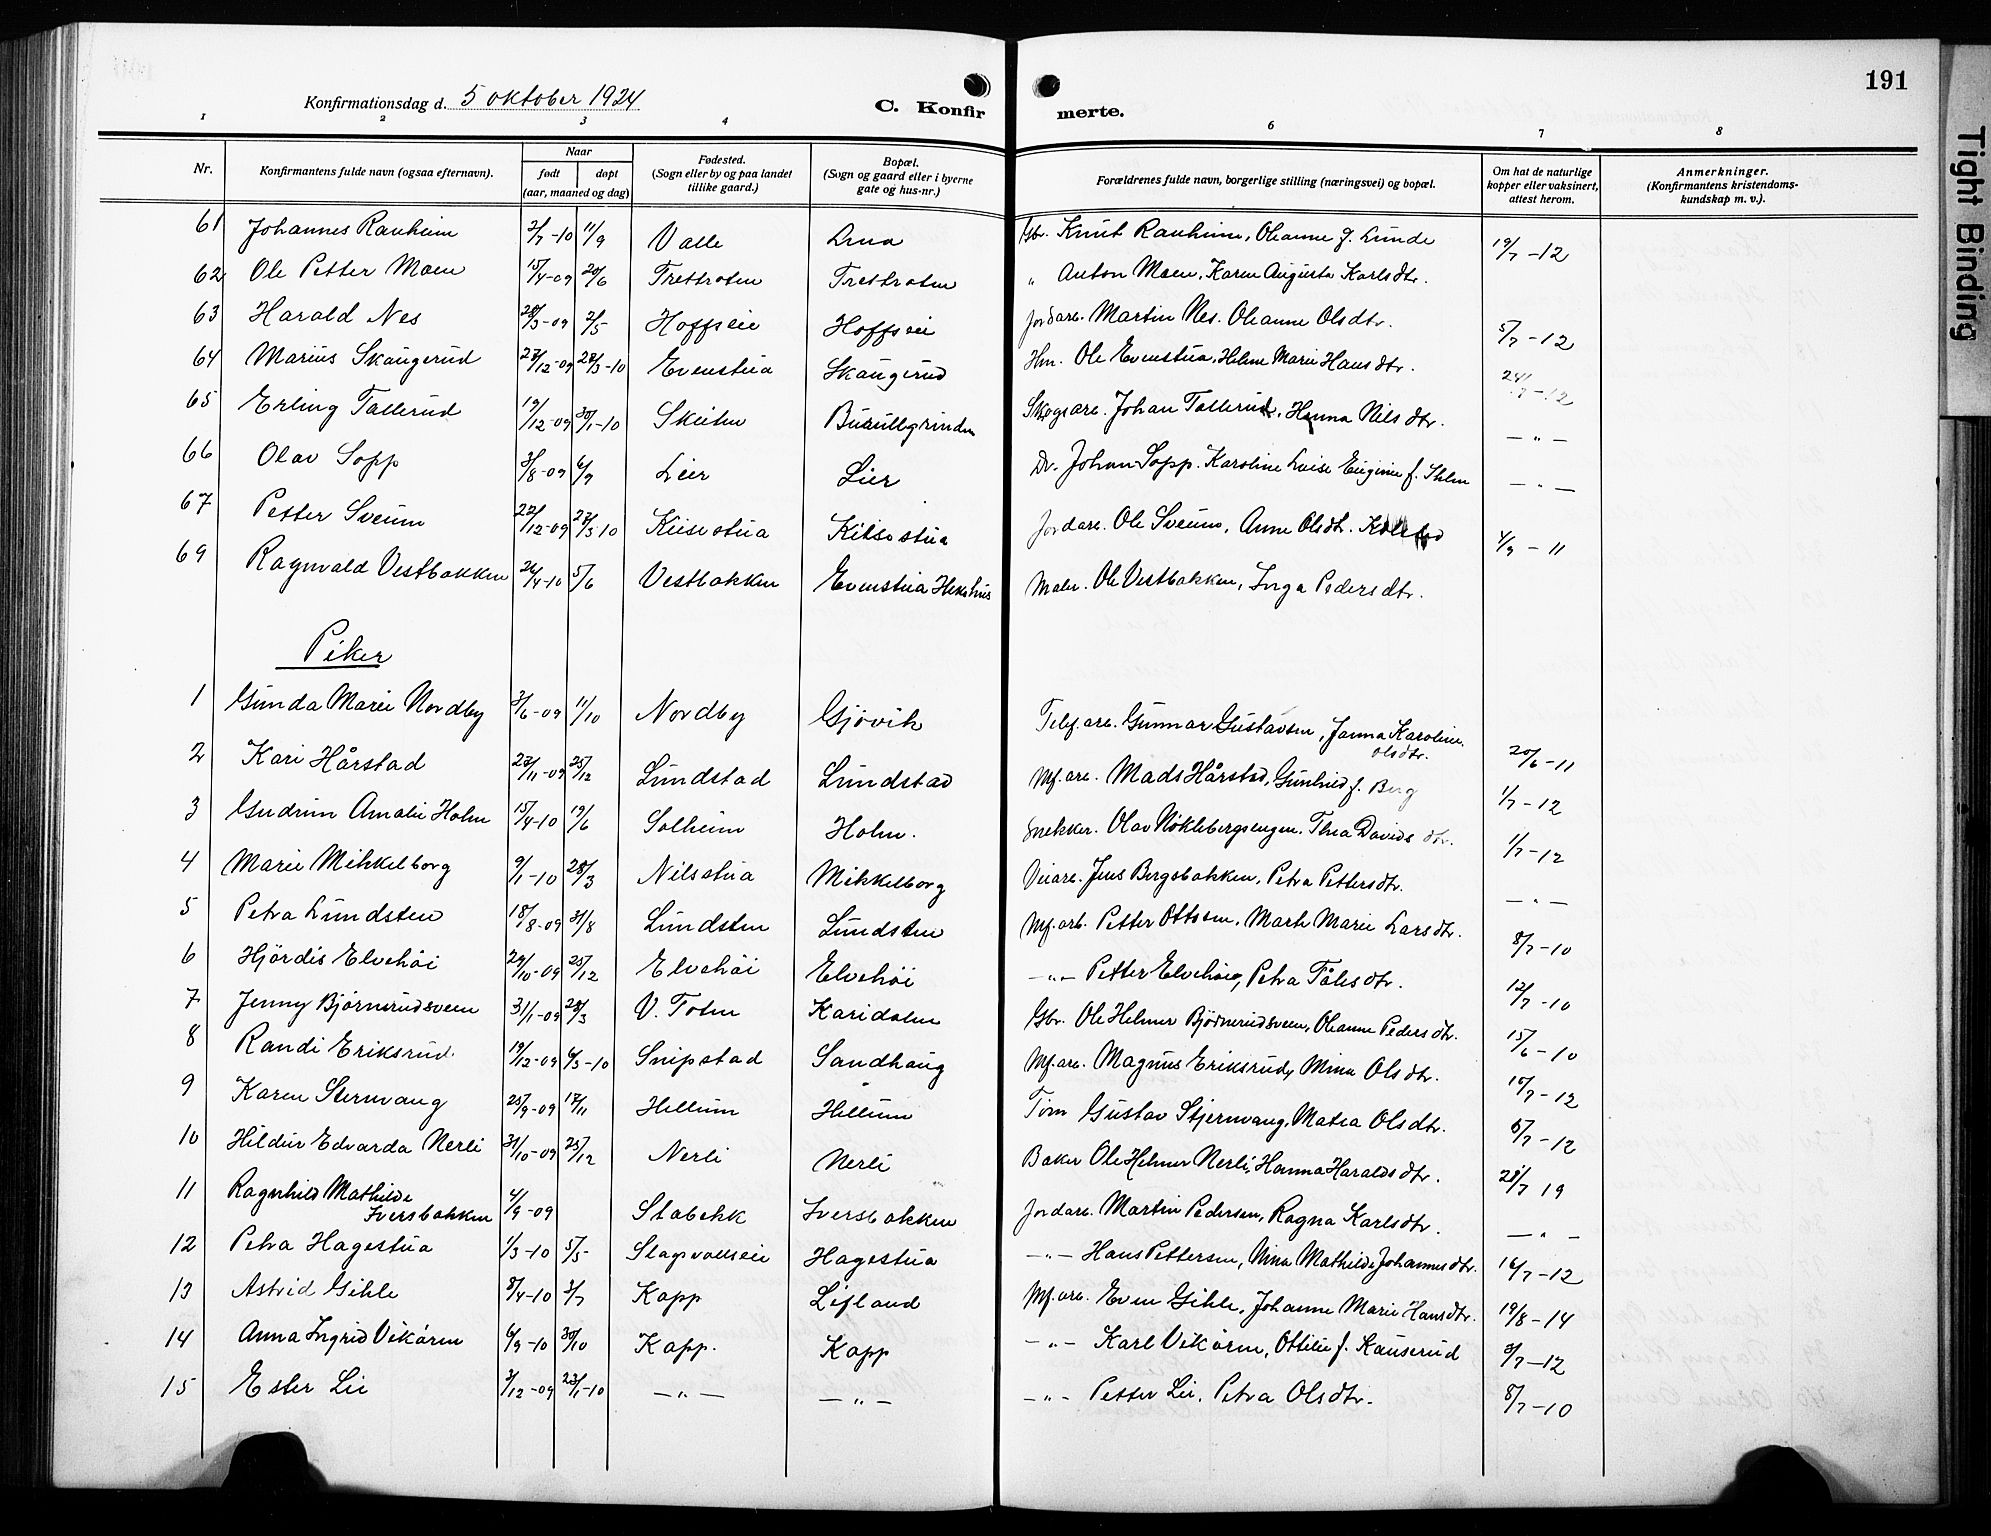 191
Konfirmationsdag d. 5 oktober 1924
C. Konfir merte.
1 2 3 4 5 6 7 8
Nr. | Konfirmantens fulde navn (ogsaa efternavn). | Naar født døpt (aar, maaned og dag) | Fødested. (Sogn eller by og paa landet tillike gaard.) | Bopæl. (Sogn og gaard eller i byerne gate og hus-nr.) | Forældrenes fulde navn, borgerlige stilling (næringsvei) og bopæl. | Om hat de naturlige kopper eller vaksinert, attest herom. | Anmerkninger. (Konfirmantens kristendoms-kundskap m. v.).
61 Johannes Ranheim 2/7-10 11/9 Valle Lena Gbr. Knut Ranheim, Oleanne f. Lunde 19/7-12
62 Ole Petter Moen 15/4-09 20/6 Trettroten Trettroten " Anton Moen, Karen Augusta Karlsdtr.
63 Harald Nes 28/3-09 2/5 Hoffseie Hoffseie Jordarb. Martin Nes. Oleanne Olsdtr. 5/7-12
64 Marius Skaugerud 27/12-09 28/3-10 Evenstua Skaugerud Hm. Ole Evenstua, Helene Marie Hansdtr. 24/7-12
65 Erling Tallerud 19/12-09 30/1-10 Skeiten Burullgrinden Skogsarb. Johan Tallerud, Hanna Nilsdtr. — " —
66 Olav Sopp 3/8-09 6/9 Leier Lier Dr. Johan Sopp. Karoline Lovise Eugenie f. Ihlen — " —
67 Petter Sveum 22/12-09 27/3 10 Kiisestua Kiisestua Jordarb. Ole Sveum, Anne Olsdtr. Kolstad 4/9-11
69 Ragnvald Vestbakken 26/4-10 5/6 Vestbakken Evenstua Maler. Ole Vestbakken, Inga Pedersdtr.
Piker
1 Gunda Marie Nordby 3/6-09 11/10 Nordby Gjøvik Telef.arb. Gunnar Gustavsen, Janna Karoline Olsdtr. 20/6-11
2 Kari Hårstad 27/11-09 25/12 Lundstad Lundstad Mf.arb. Mads Hårstad, Gunhild f. Berg 1/7-12
3 Gudrun Amalie Holm 15/4-10 19/6 Solheim Holm. Snekker. Olav Nøklebergsengen. Thea Davidsdtr. 1/7-12
4 Marie Mikkelborg 9/1-10 28/3 Nilsstua Mikkelborg Veiarb. Jens Bergsbakken, Petra Pettersdtr. — " —
5 Petra Lundsten 18/8-09 31/8 Lundsten Lundsten Mf.arb. Petter Ottosen. Marte Marie Larsdtr. 8/7-10
6 Hjørdis Elvehøi 24/10-09 25/12 Elvehøi Elvehøi —"— Petter Elvehøi, Petra Pålsdtr. 12/7-10
7 Jenny Bjørnerudsveen 31/1-09 28/3 V. Toten Karidalen Gbr. Ole Helmer Bjørnerudsveen, Oleanne Pedersdtr. 15/6-10
8 Randi Eriksrud 19/12-09 6/3-10 Snipstad Sandhaug Mf.arb. Magnus Eriksrud, Mina Olsdtr. 10/7-12
9 Karen Sternvang 25/9-09 17/11 Hellum Hellum Tøm Gustav Stjernvang, Matea Olsdtr. 5/7-12
10 Hildur Edvarda Nerli 31/10-09 25/12 Nerli Nerli Baker Ole Helmer Nerli, Hanna Haraldsdtr. 28/7 19
11 Ragnhild Mathilde Iversbakken 4/9-09 Stabekk Iversbakken Jordarb. Martin Pedersen, Ragna Karlsdtr. — " —
12 Petra Hagestua 1/3-10 5/5 Slagsvollseie Hagestua —"— Hans Pettersen, Nina Mathilde Johannesdtr. 16/7-12
13 Astrid Gihle 8/4-10 3/7 Kapp Lifland Mf.arb. Even Gihle, Johanne Marie Hansdtr. 19/8-14
14 Anna Ingrid Vikøren 6/9-10 30/10 Kapp. Kapp —"— Karl Vikøren, Ottilie f. Kauserud 9/7-12
15 Ester Lie 3/12-09 23/1-10 — " — — " — —"— Petter Lie, Petra Olsdtr. 8/7-10
Tight Binding